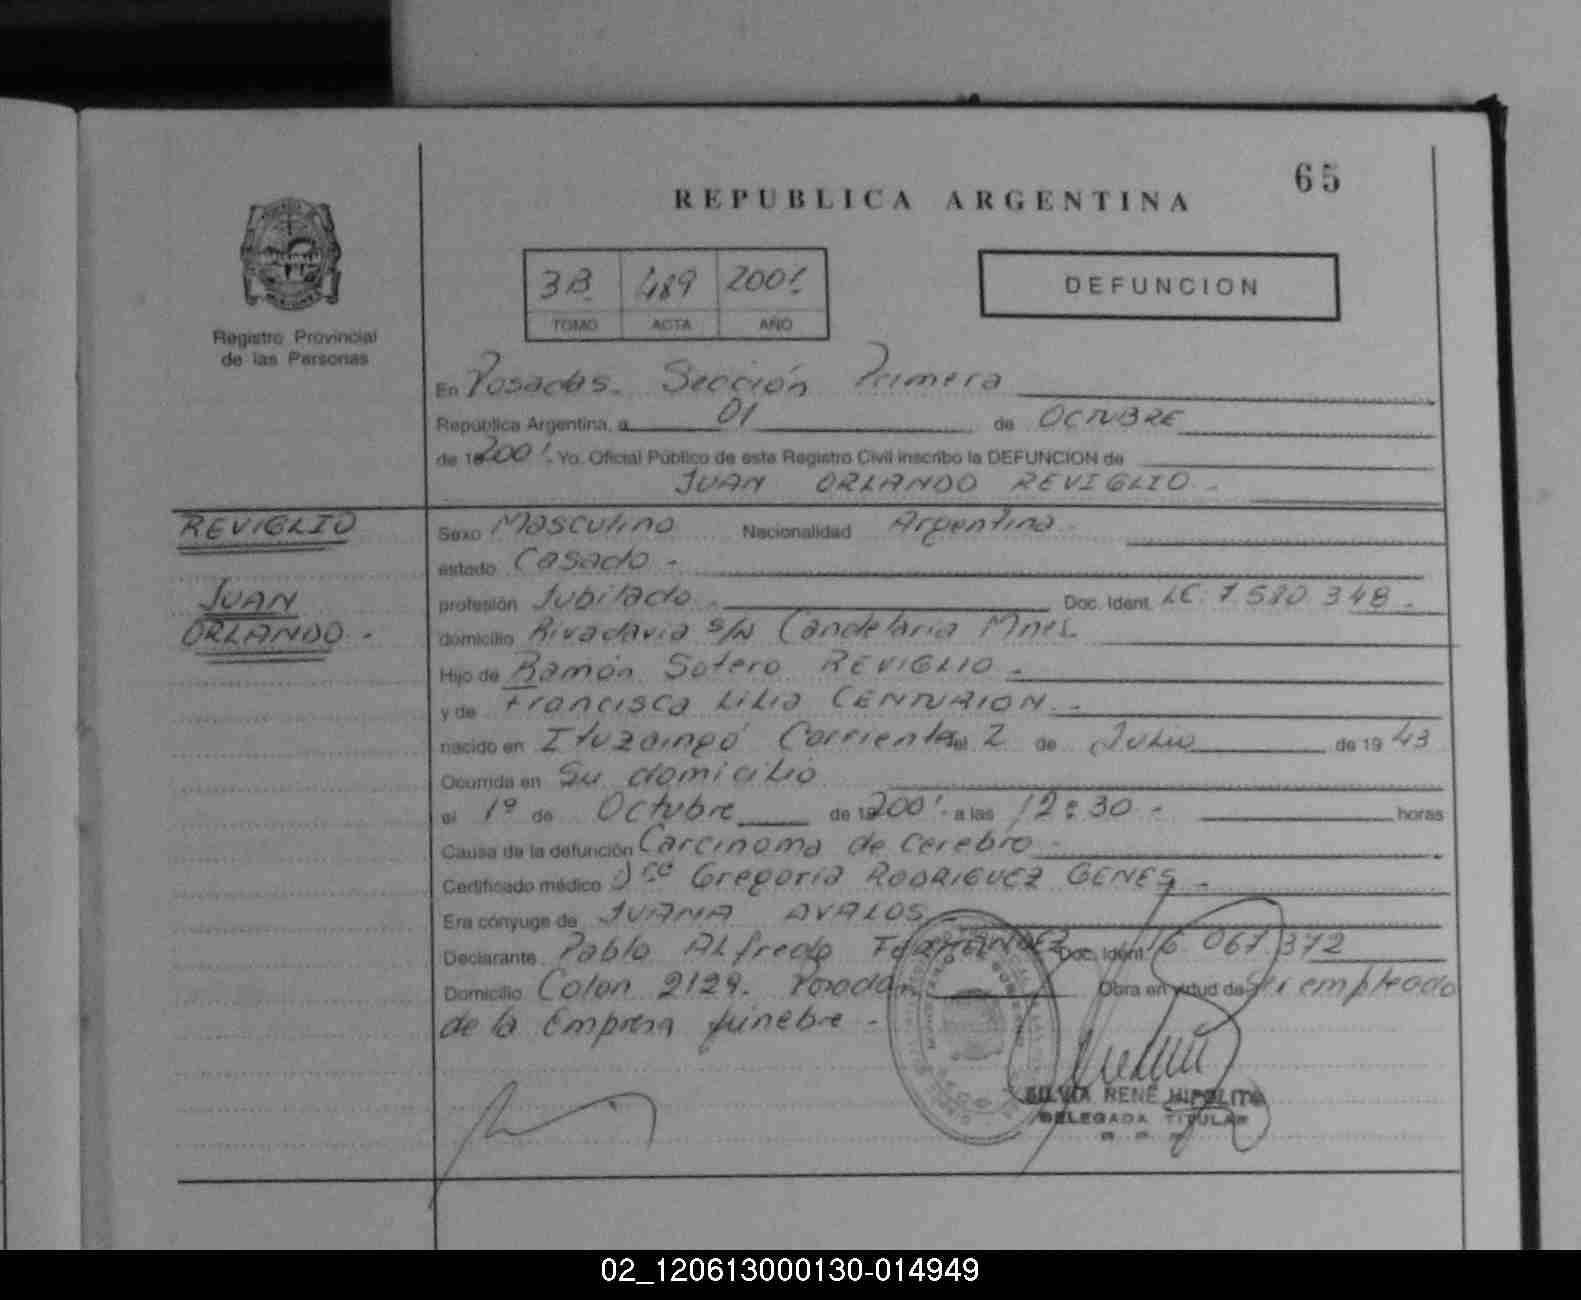 65
REPUBLICA ARGENTINA
3B 489 2001
TOMO ACTA AÑO
DEFUNCION
Registro Provincial
de las Personas
En Posadas. Sección Primera
República Argentina, a 01 de OCTUBRE
de 19 2001. Yo, Oficial Público de este Registro Civil inscribo la DEFUNCION de
JUAN ORLANDO REVIGLIO.-
REVIGLIO
JUAN
ORLANDO.-
Sexo Masculino Nacionalidad Argentina
estado Casado.-
profesión Jubilado. Doc. Ident. LC. 7.580.348.-
domicilio Rivadavia s/n Candelaria Mnes.
Hijo de Ramón Sotero REVIGLIO.-
y de Francisca Lilia CENTURION.-
nacido en Ituzaingó Corrientes el 2 de Julio de 1943
Ocurrida en Su domicilio
el 1º de Octubre de 19 2001. a las 12:30.- horas
Causa de la defunción Carcinoma de cerebro.-
Certificado médico Dra Gregoria RODRIGUEZ GENES.-
Era cónyuge de JUANA AVALOS.-
Declarante Pablo Alfredo FERNANDEZ Doc. Ident. 16.067.372
Domicilio Colon 2129. Posadas. Obra en virtud de Ser empleado
de la Empresa fúnebre.-
SILVIA RENE HIPOLITO
DELEGADA TITULAR
02_120613000130-014949